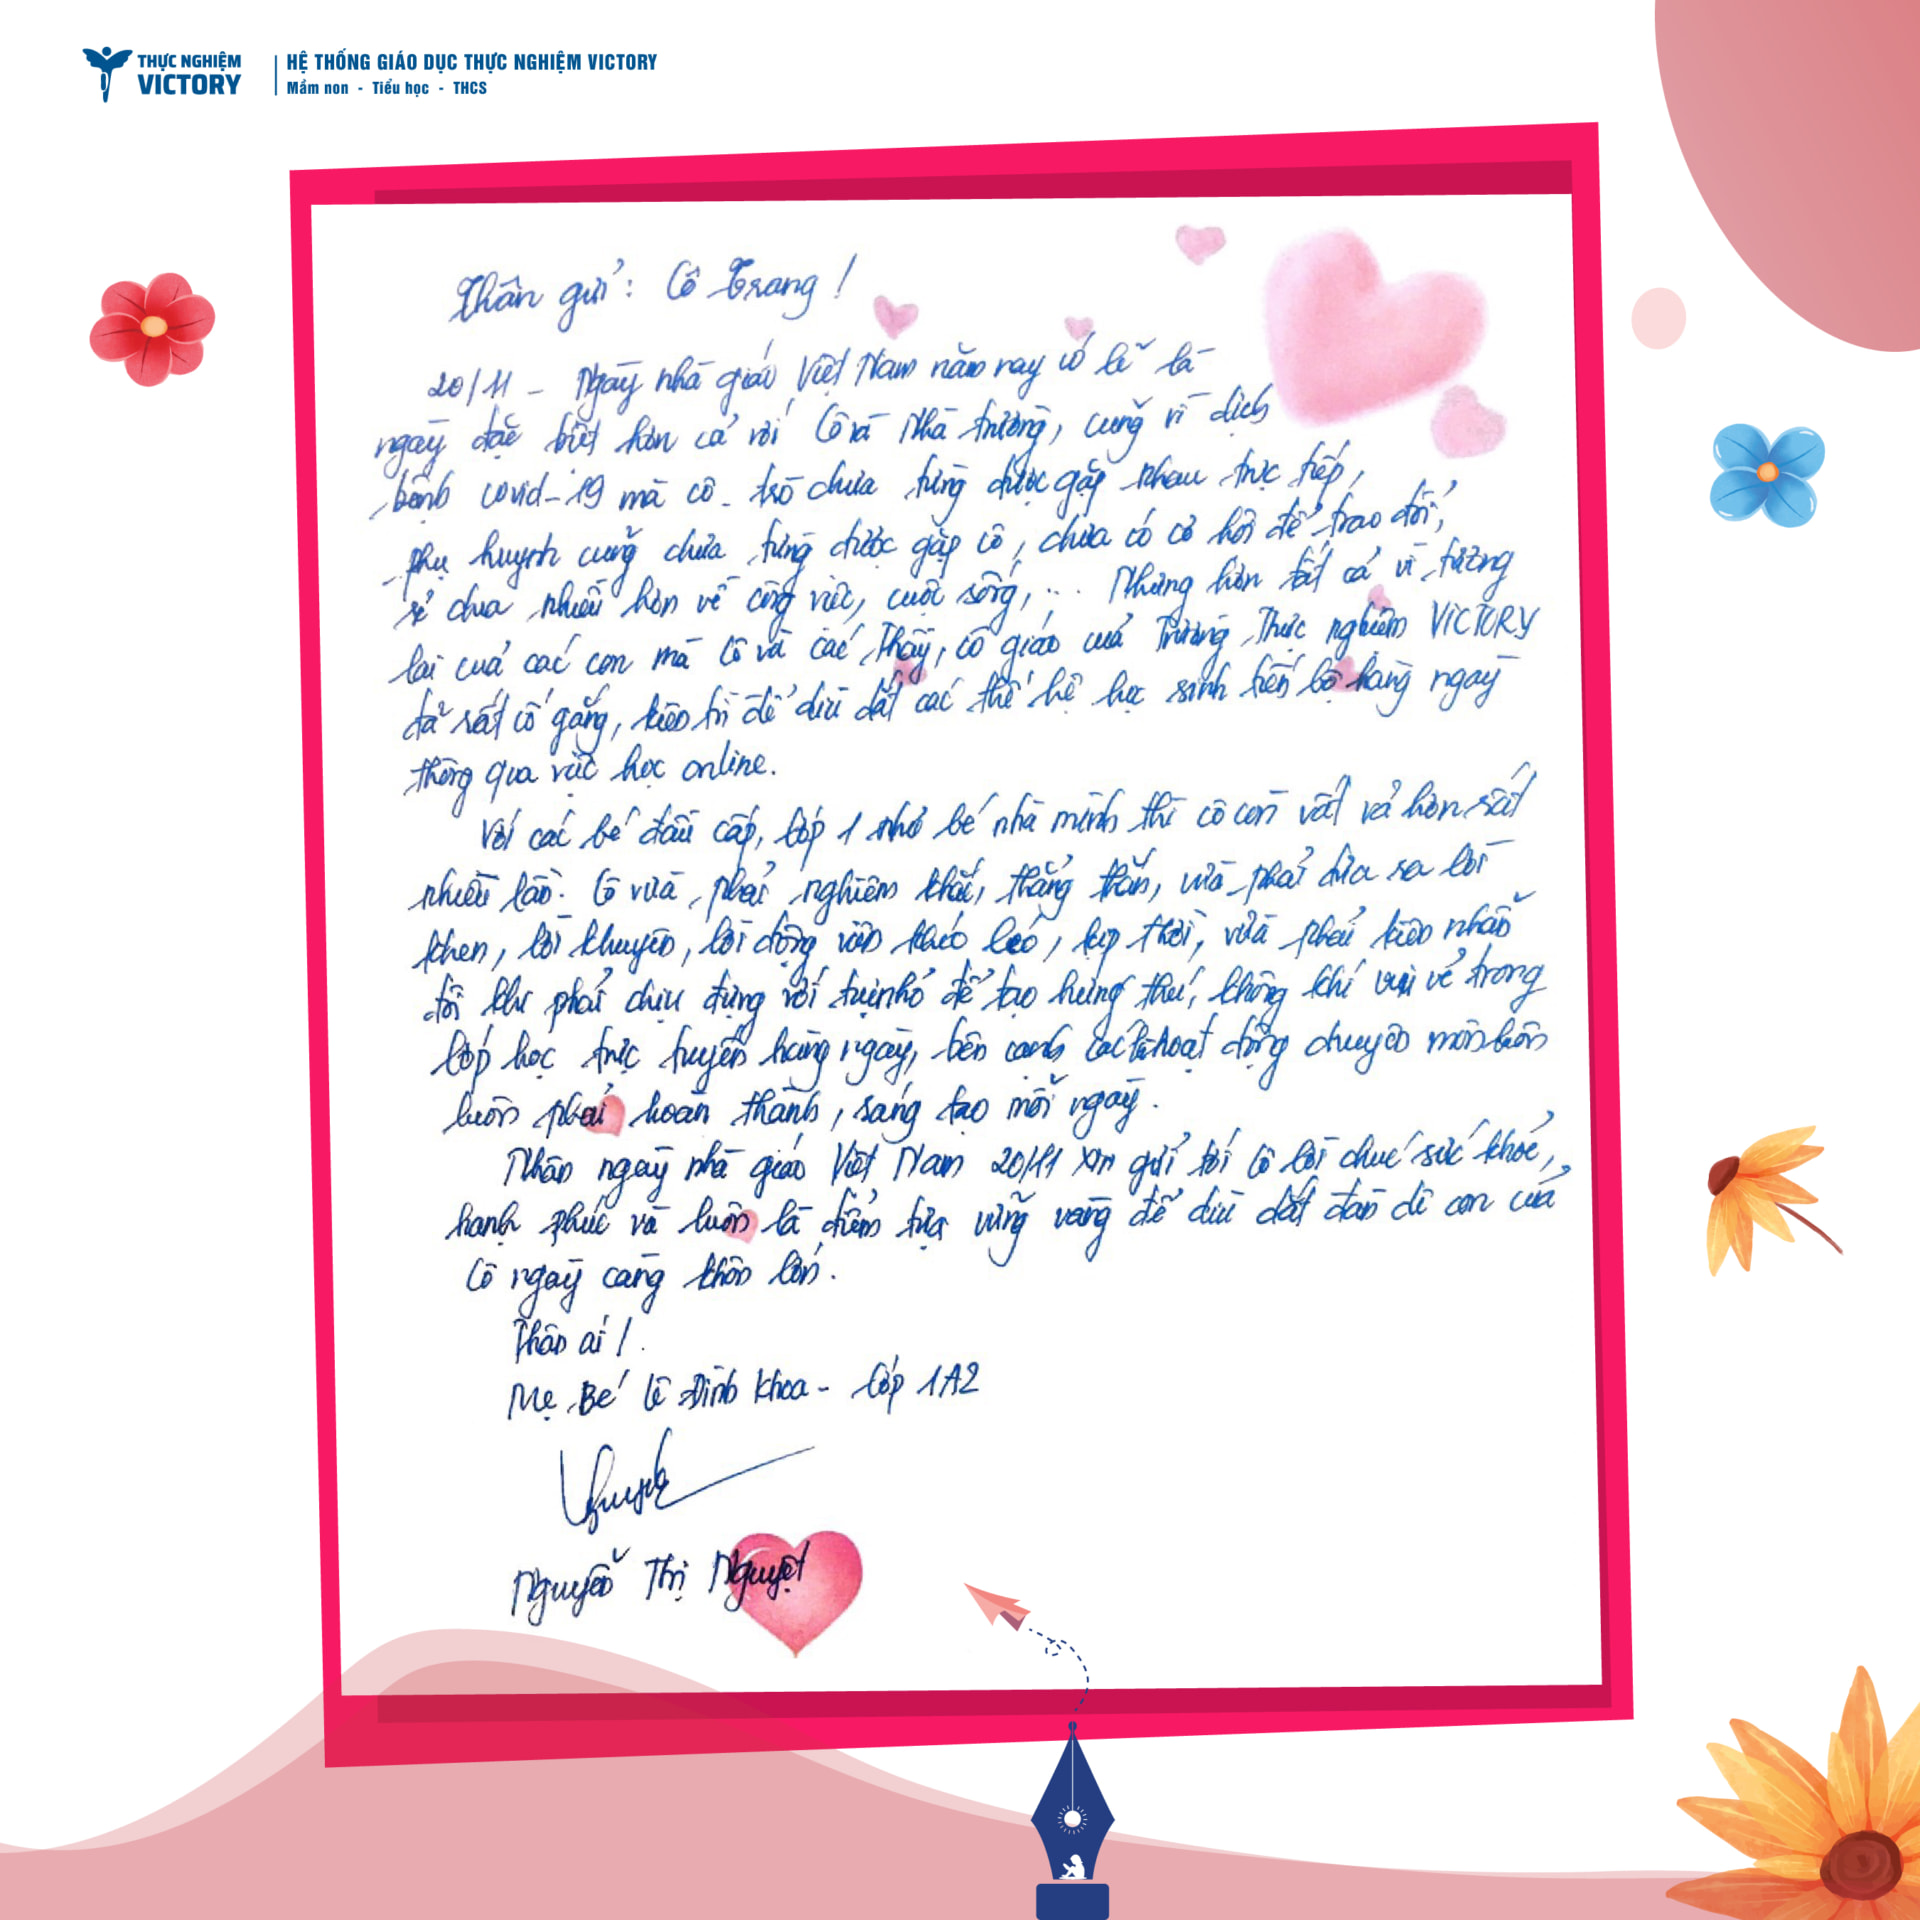 THỰC NGHIỆM
VICTORY
HỆ THỐNG GIÁO DỤC THỰC NGHIỆM VICTORY
Mầm non - Tiểu học - THCS
Thân gửi: Cô Trang!
20/11 - Ngày nhà giáo Việt Nam năm nay có lẽ là
ngày đặc biệt hơn cả với Cô và Nhà trường, cũng vì dịch
bệnh covid-19 mà cô - trò chưa từng được gặp nhau trực tiếp,
phụ huynh cũng chưa từng được gặp cô, chưa có cơ hội để trao đổi,
sẻ chia nhiều hơn về công việc, cuộc sống,... Nhưng hơn tất cả vì tương
lai của các con mà Cô và các Thầy, cô giáo của Trường Thực nghiệm VICTORY
đã rất cố gắng, kiên trì để dìu dắt các thế hệ học sinh tiến bộ hàng ngày
thông qua việc học online.
Với các bé đầu cấp, lớp 1 như bé nhà mình thì cô còn vất vả hơn rất
nhiều lần. Cô vừa phải nghiêm khắc, thẳng thắn, vừa phải đưa ra lời
khen, lời khuyên, lời động viên khéo léo, kịp thời, vừa phải kiên nhẫn
đôi khi phải chịu đựng với tụi nhỏ để tạo hứng thú, không khí vui vẻ trong
lớp học trực tuyến hàng ngày, bên cạnh các hoạt động chuyên môn luôn
luôn phải hoàn thành, sáng tạo mỗi ngày.
Nhân ngày nhà giáo Việt Nam 20/11 xin gửi tới Cô lời chúc sức khỏe,
hạnh phúc và luôn là điểm tựa vững vàng để dìu dắt đàn con của
Cô ngày càng khôn lớn.
Thân ái!
Mẹ Bé Lê Đình Khoa - Lớp 1A2
Nguyễn Thị Nguyệt